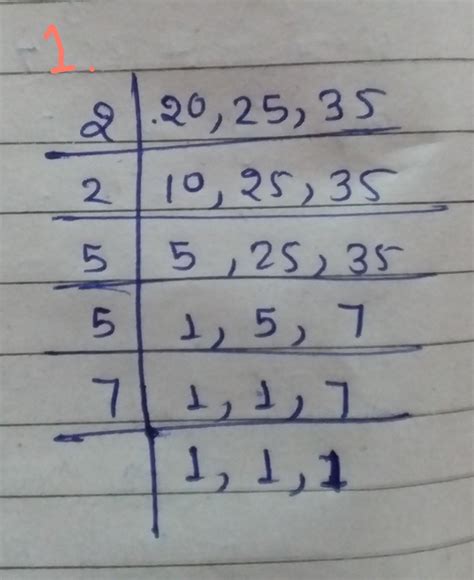 1.
2 20, 25, 35
2 10, 25, 35
5 5, 25, 35
5 1, 5, 7
7 1, 1, 7
1, 1, 1